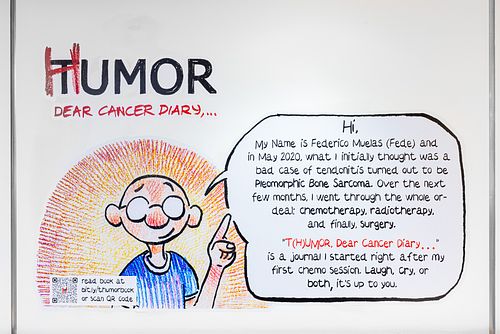 T(H)UMOR
DEAR CANCER DIARY,...
Hi,
My Name is Federico Muelas (Fede) and
in May 2020, what I initially thought was a
bad case of tendonitis turned out to be
Pleomorphic Bone Sarcoma. Over the next
few months, I went through the whole or-
deal: chemotherapy, radiotherapy,
and finally, surgery.
"T(H)UMOR, Dear Cancer Diary,..."
is a journal I started right after my
first chemo session. Laugh, cry, or
both, it's up to you.
read book at
bit.ly/thumorbook
or scan QR code